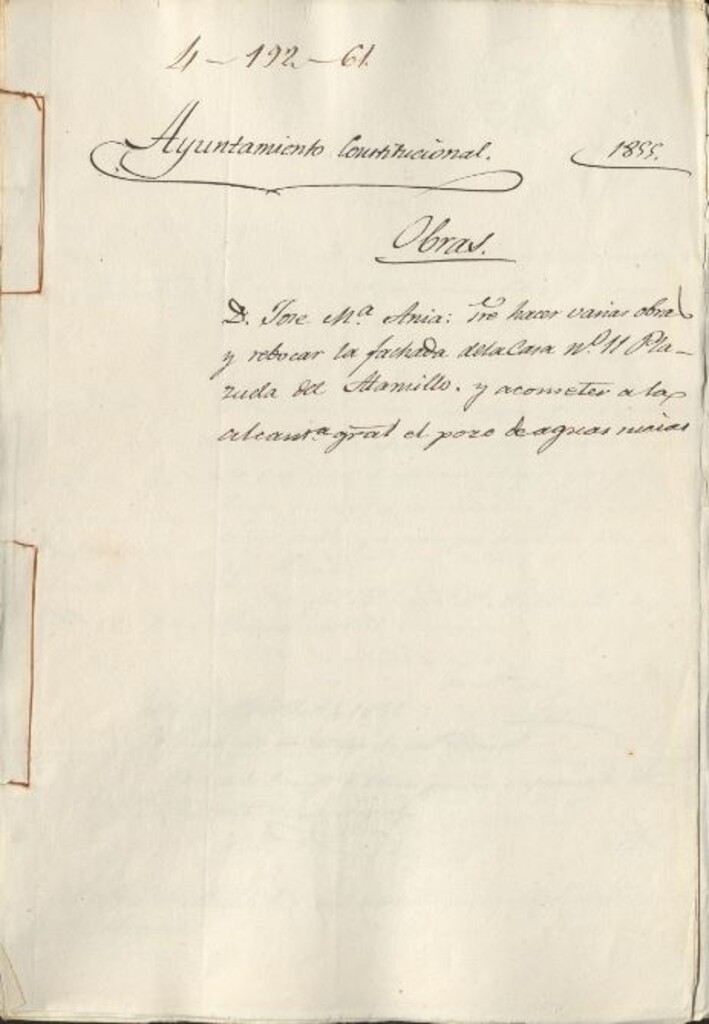 4 - 192 - 61
Ayuntamiento Constitucional. 1855.
Obras.
D. Jose Mª Ania: sre hacer varias obras
y rebocar la fachada dela Casa nº 11 Pla-
zuela del Alamillo. y acometer a la
alcantª gral el pozo de aguas sucias